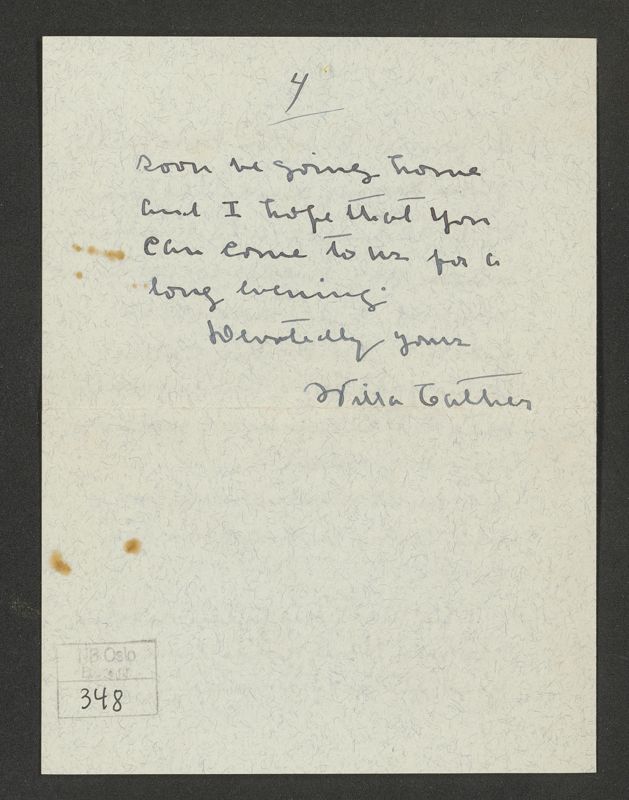 4
soon be going home
and I hope that you
can come to us for a
long evening.
Devotedly yours
Willa Cather
NB Oslo
348